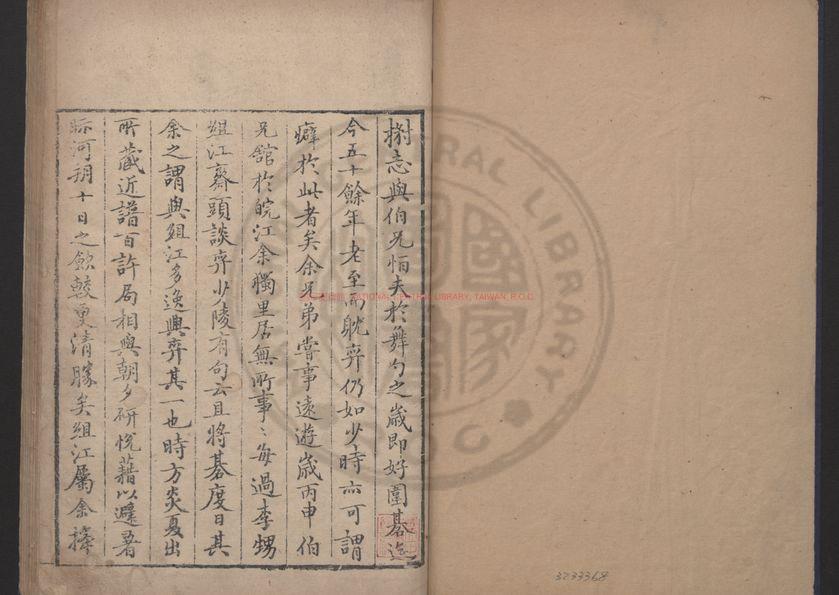 樹志與伯兄怕夫於舞勺之歲即好圍碁迄
今五十餘年老至而躭弈仍如少時亦可謂
癖於此者矣余兄弟嘗事遠遊歲丙申伯
兄舘於皖江余獨里居無所事〻每過李甥
組江齋頭談弈少陵有句云且將碁度日其
余之謂與組江多逸興弈其一也時方炎夏出
所藏近譜百許局相與朝夕研悅藉以避暑
眎河朔十日之飲較更清勝矣組江屬余擇
NATIONAL CENTRAL LIBRARY, TAIWAN, R.O.C.
3233368